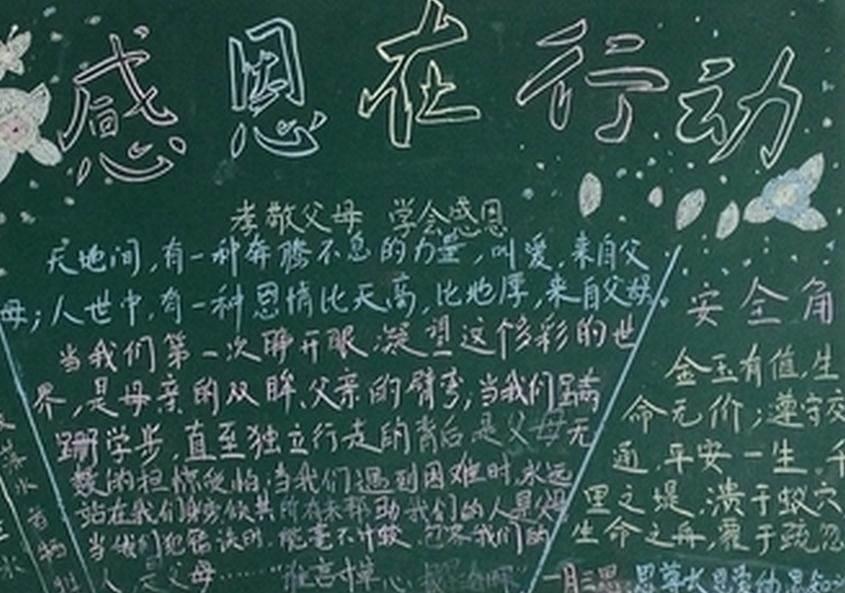 感恩在行动
孝敬父母 学会感恩
天地间,有一种奔腾不息的力量,叫爱,来自父
母;人世中,有一种恩情比天高,比地厚,来自父母。
当我们第一次睁开眼,凝望这个多彩的世
界,是母亲的双眸、父亲的臂弯;当我们蹒
跚学步,直至独立行走的背后是父母无
数的担惊受怕,当我们遇到困难时,永远
站在我们身旁 助我们的人是父母
当我们犯错误时,能毫不计较, 我们的
人是父母……
安全角
金玉有值,生
命无价;遵守交
通,平安一生。千
里之堤,溃于蚁穴
生命之舟,覆于疏忽
一日三思:思尊长